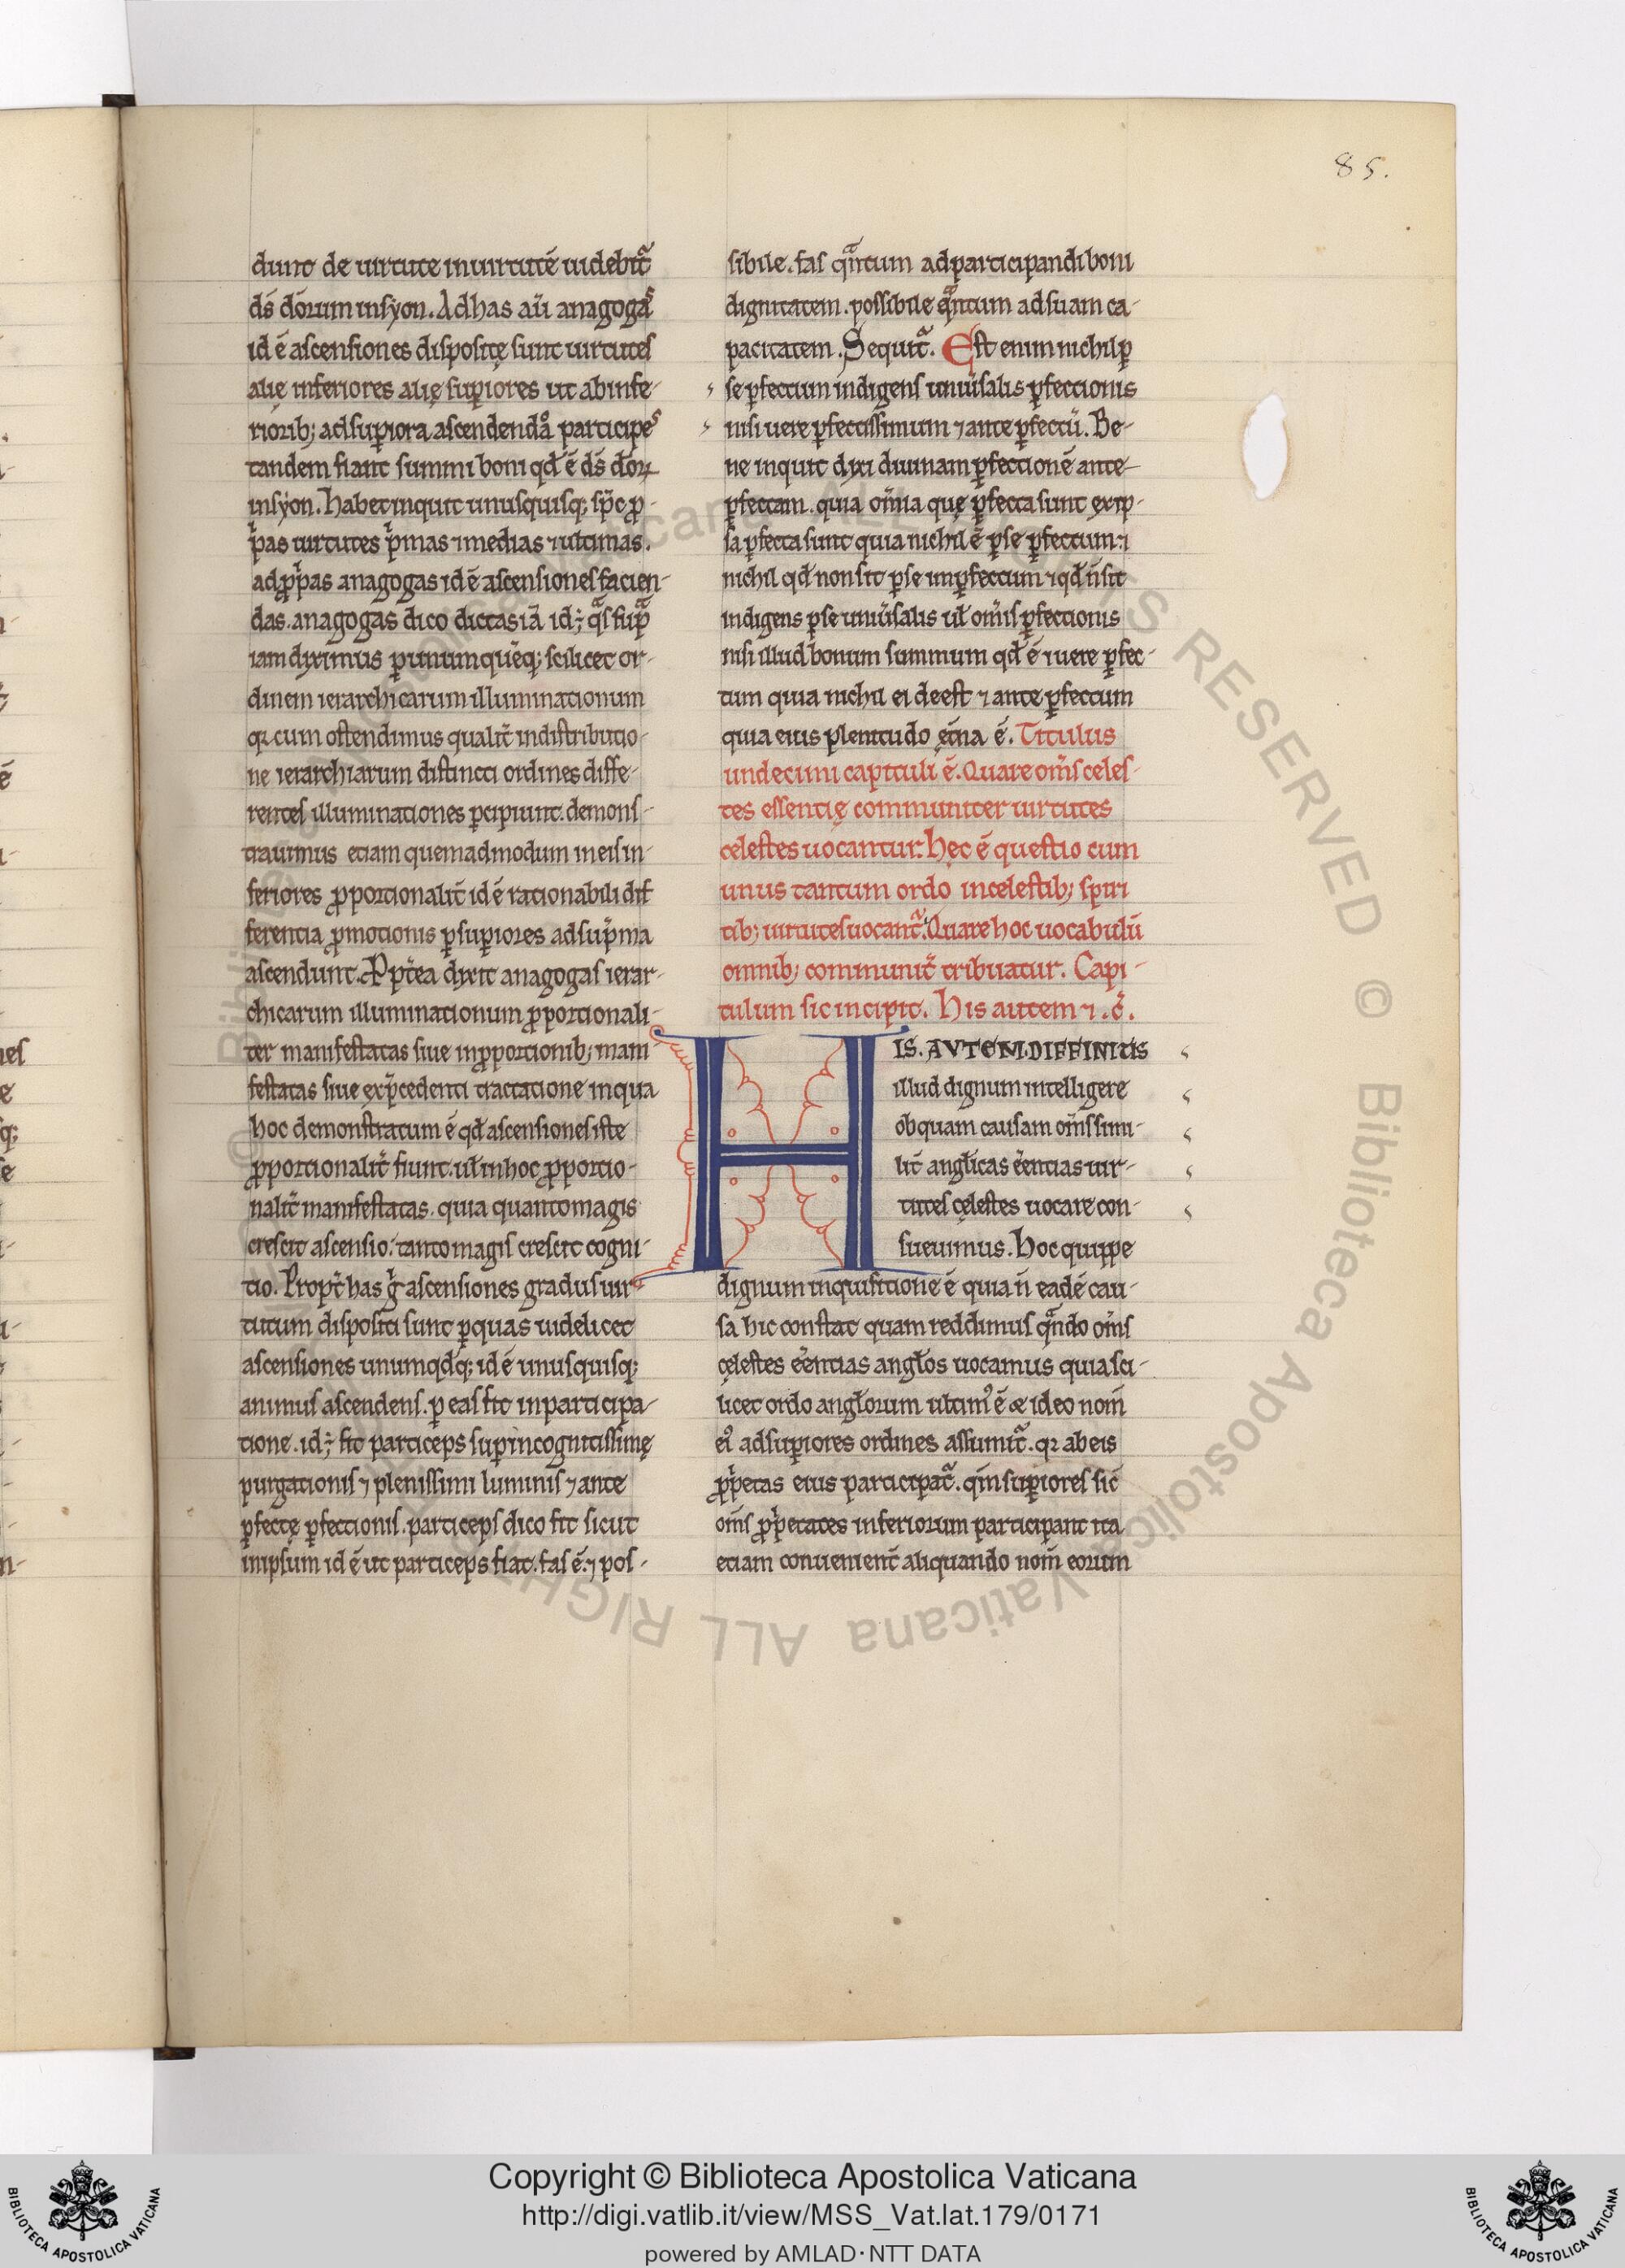 85.
dunt de uirtute in uirtutẽ uidebit᷑
ds̃ dõrum in syon. Ad has aũ anagogas
id ẽ ascensiones disposite̜ sunt uirtutes
alie̜ inferiores alie̜ suꝑiores ut ab infe-
riorib; ad suꝑiora ascendendo participes
tandem fiant summi boni qd̃ ẽ ds̃ dõꝝ
in syon. Habet inquit unusquisq; sp̃c ꝓ-
pⁱas uirtutes pⁱmas ⁊ medias ⁊ ultimas.
ad ꝓpⁱas anagogas id ẽ ascensiones facien-
das. anagogas dico dictas iã id ÷ q̃s sup̃
iam diximus ꝑ unumquẽq; scilicet or-
dinem ierarchicarum illuminationum
qꝛ cum ostendimus qualit᷑ in distributio-
ne ierarchiarum distincti ordines diffe-
rentes illuminationes ꝑcipiunt. demons-
trauimus etiam quemadmodum in eis in-
feriores ꝓportionalit᷑ id ẽ rationabili dif
ferentia ꝓmotionis ꝑ suꝑiores ad sup̃ma
ascendunt. Ppt᷑ea dixit anagogas ierar-
chicarum illuminationum ꝓportionali-
ter manifestatas siue in ꝓportionib; mani-
festatas siue ex p̃cedenti tractatione in qua
hoc demonstratum ẽ qd̃ ascensiones iste
ꝓportionalit᷑ fiunt. ul̃ in hoc ꝓportio-
nalit᷑ manifestatas. quia quanto magis
crescit ascensio: tanto magis crescit cogni-
tio. Propt᷑ has gⁱ ascensiones gradus uir-
tutum dispositi sunt ꝑ quas uidelicet
ascensiones unumqd̃q; id ẽ unusquisq;
animus ascendens. ꝑ eas fit in participa-
tione. id ÷ fit particeps suꝑincognitissime̜
purgationis ⁊ plenissimi luminis ⁊ ante
ꝑfecte̜ ꝑfectionis. particeps dico fit sicut
in ipsum id ẽ ut particeps fiat. fas ẽ. ⁊ pos-
sibile. fas qᵃntum ad participandi boni
dignitatem. possibile qᵃntum ad suam ca-
pacitatem. Sequit᷑. Est enim nichil ꝑ
se ꝑfectum indigens uniũsalis ꝑfectionis
nisi uere ꝑfectissimum ⁊ ante ꝑfectũ. Be-
ne inquit dixi diuinam ꝑfectionẽ ante-
ꝑfectam. quia om̃ia que̜ ꝑfecta sunt ex ip-
sa ꝑfecta sunt quia nichil ẽ ꝑ se ꝑfectum: ⁊
nichil qd̃ non sit ꝑ se imꝑfectum ⁊ qd̃ ñ sit
indigens ꝑ se uniũsalis ul̃ om̃is ꝑfectionis
nisi illud bonum summum qd̃ ẽ ⁊ uere ꝑfec-
tum quia nichil ei deest ⁊ ante ꝑfectum
quia eius plenitudo et̃na ẽ. Titulus
undecimi capituli ẽ. Quare om̃s celes-
tes essentie̜ communiter uirtutes
celestes uocantur. Hec ẽ questio cum
unus tantum ordo in celestib; spiri
tib; uirtutes uocant᷑. Quare hoc uocabulũ
omnib; communit᷑ tribuatur. Capi-
tulum sic incipit. His autem ⁊ .c̃.
HIS. AVTEM. DIFFINITIS
illud dignum intelligere
ob quam causam om̃s simi-
lit᷑ angl̃icas ẽentias uir-
tutes ce̜lestes uocare con-
sueuimus. Hoc quippe
dignum inquisitione ẽ quia ñ eadẽ cau-
sa hic constat quam reddimus qᵃndo om̃s
ce̜lestes ẽentias angl̃os uocamus quia sci-
licet ordo angl̃orum ultimꝰ ẽ & ideo nom̃
eiꝰ ad suꝑiores ordines assumit᷑. qꝛ ab eis
ꝓpⁱetas eius participat᷑. qm̃ suꝑiores sic̃
om̃s ꝓpⁱetates inferiorum participant ita
etiam conuenient᷑ aliquando nom̃ eorum
Copyright © Biblioteca Apostolica Vaticana
http://digi.vatlib.it/view/MSS_Vat.lat.179/0171
powered by AMLAD·NTT DATA